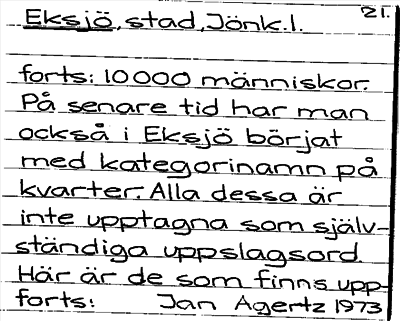 21.
Eksjö, stad, Jönk.l.
forts: 10000 människor.
På senare tid har man
också i Eksjö börjat
med kategorinamn på
kvarter. Alla dessa är
inte upptagna som själv-
ständiga uppslagsord.
Här är de som finns upp-
forts: Jan Agertz 1973